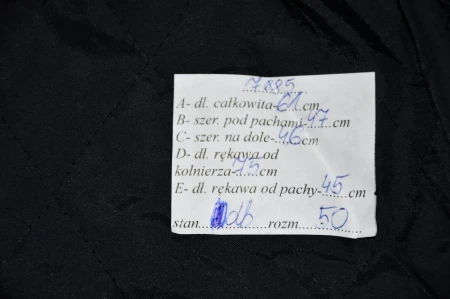 7885
A- dł. całkowita-61cm
B- szer. pod pachami-47cm
C- szer. na dole-46cm
D- dł. rękawa od
kołnierza-75cm
E- dł. rękawa od pachy-45cm
stan......db......rozm...50